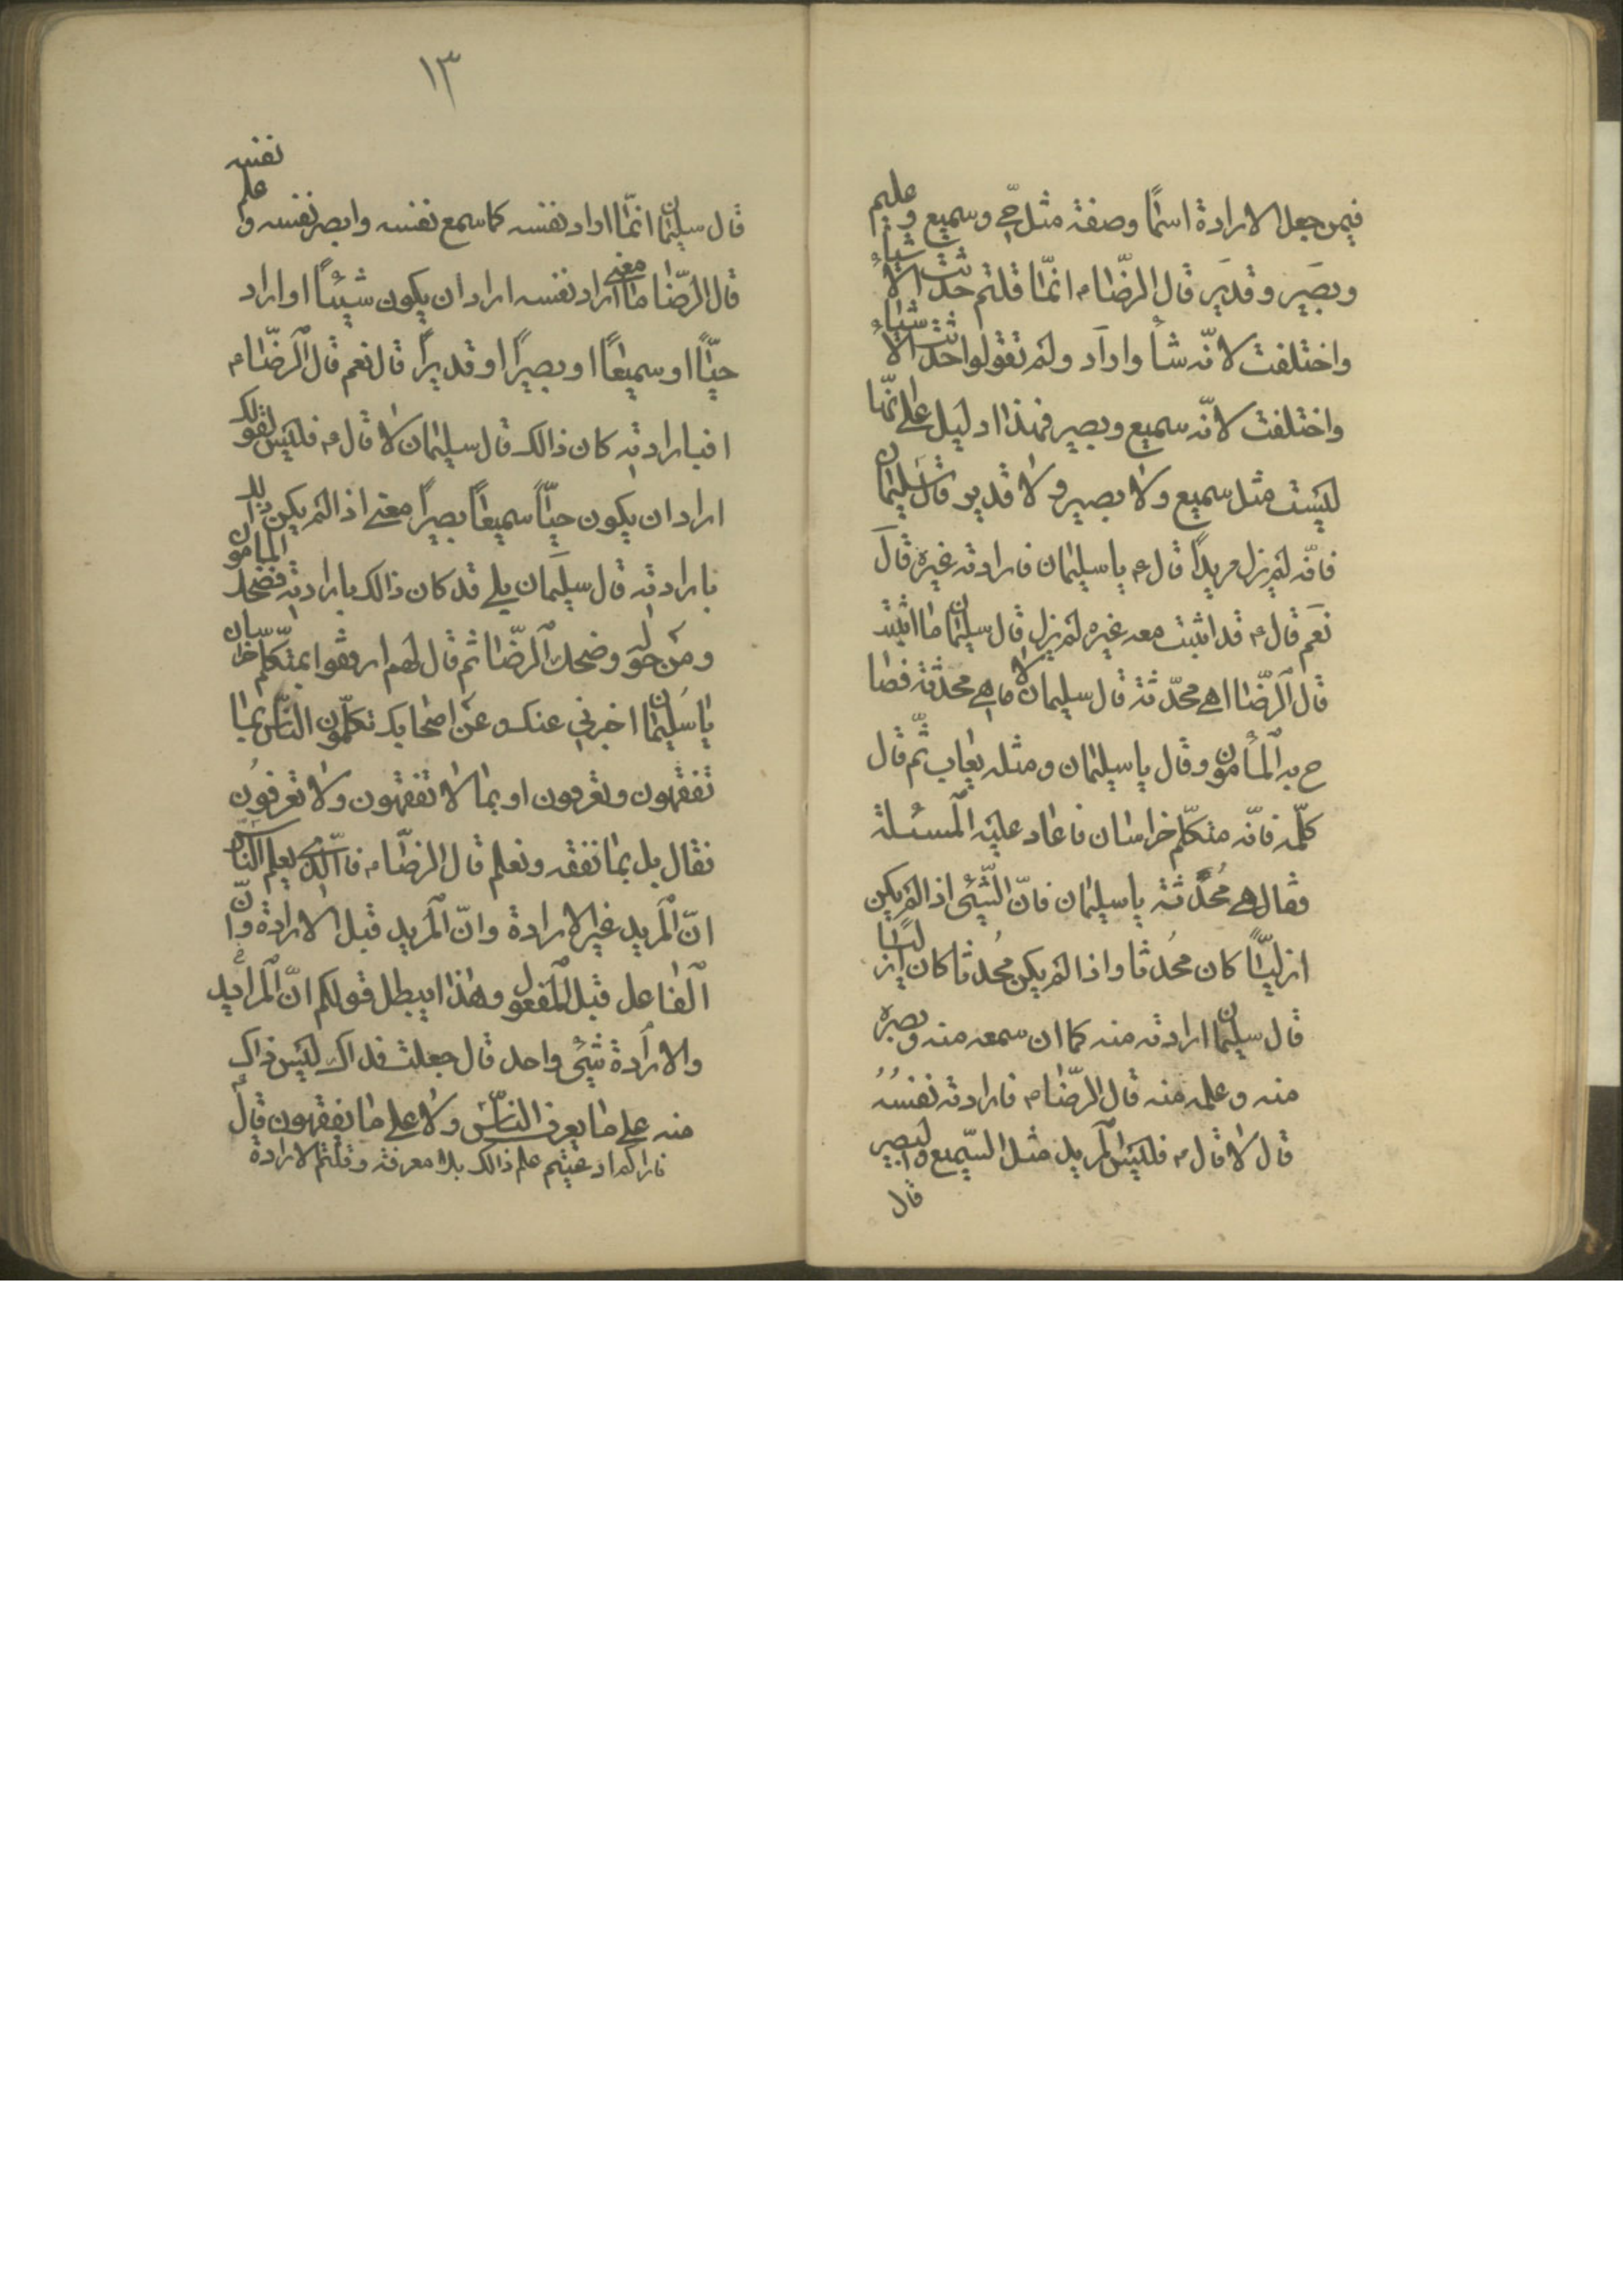 فيمن جعل الارادة اسمًا وصفة مثل حيّ وسميع وعليم
وبصير وقدير قال الرّضام انمّا قلتم حدثت الاشياء
واختلفت لانّه شأ واراد ولم تقولوا حدثت الاشياء
واختلفت لانّه سميع وبصير فهذا دليل على انهّا
ليست مثل سميع ولا بصير ولا قدير قال سليمان
فانّه لم يزل مريدًا قال ع يا سليمان فارادته غيره قال
نعم قال ع قد اثبت معه غيره لم يزل قال سليمان ما اثبت
قال الرّضا اهي محدّثة قال سليمان لا ما هي محدثة فصا
ح به المأمون وقال يا سليمان ومثله يعاب ثمّ قال
كلّمه فانّه متكلّم خراسان فاعاد عليه المسئلة
فقال هي مُحدثة يا سليمان فانّ الشّيئ اذا لم يكن
ازليّاً كان محُدثا واذا لم يكن محُدثا كان ازليّاً
قال سليمان ارادته منه كما ان سمعه منه وبصره
منه وعلمه منه قال الرّضام فارادته نفسُه
قال لا قال م فليس المريد مثل السّميع والبصير
قال
١٣
قال سليمان انمّا اراد نفسه كما سمع نفسه وابصر نفسه وعلم نفسه
قال الرّضا ما معنى اراد نفسه اراد ان يكون شيئاً او اراد
حيّاً او سميعاً او بصيرًا او قديرًا قال نعم قال الرّضام
افبارادته كان ذالك قال سليمان لا قال ع فليس لقولك
اراد ان يكون حيّاً سميعاً بصيراً معنى اذا لم يكن ذالك
بارادته قال سليمان بلى قد كان ذالك بارادته فضحك المامون
ومن حوله وضحك الرّضا ثم قال لهم ارفقوا بمتكلّم خراسان
يا سليمان اخبرني عنك وعن اصحابك تكلمّون النّاس بما
تفقهون وتعرفون او بما لا تفقهون ولا تعرفون
فقال بل بما نفقه ونعلم قال الرضّام فالّذي يعلم النّاس
انّ المريد غير الارادة وانّ المريد قبل الارادة وانّ
الفاعل قبل المفعول وهذا يبطل قولكم انّ المريد
والارادة شيئ واحد قال جعلت فداك ليس ذاك
منه على ما يعرف النّاس ولا على ما يفقهون قال ع
فاراكم ادعيتم علم ذالك بلا معرفة وقلتم الارادة